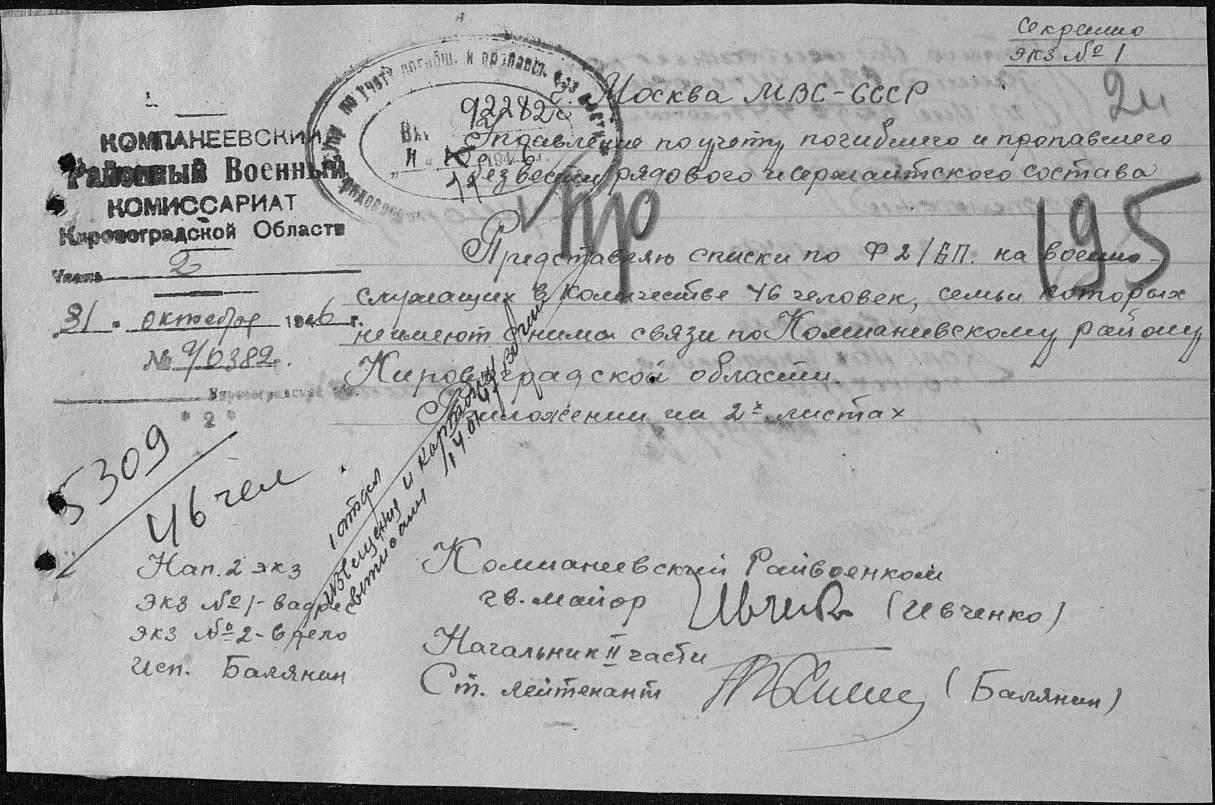 Секретно
экз № 1
2и
КОМПАНЕЕВСКИЙ
Районный Военный
КОМИССАРИАТ
Кировоградской Области
Часть 2
31 " октября 1946 г.
№ 2/0382.
"2"
по учету погибш. и пропавш. без вести
92282с
Вх.
г. Москва МВС-СССР
Управление по учету погибшего и пропавшего
безвести рядового и сержантского состава
195
Представляю списки по Ф 2/БП. на военно-
служащих в количестве 46 человек, семьи которых
не имеют с ними связи по Компаниевскому району
Кировоградской области.
Приложении на 2х листах
5309
46 чел
1 отдел
извещения и карточки
выписаны
Нап. 2 экз
экз №1-в адрес
экз №2-в дело
Исп. Балянин
Компаниевский Райвоенком
гв. майор (Ивченко)
Начальник II части
Ст. лейтенант (Балянин)